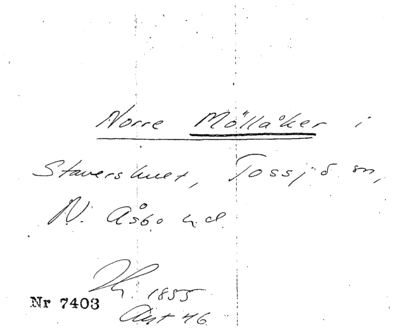 Norre Mölläker i
Stavershult, Tossjö sn,
N. Åsbo hd.
1855
Nr 7403
Akt 46